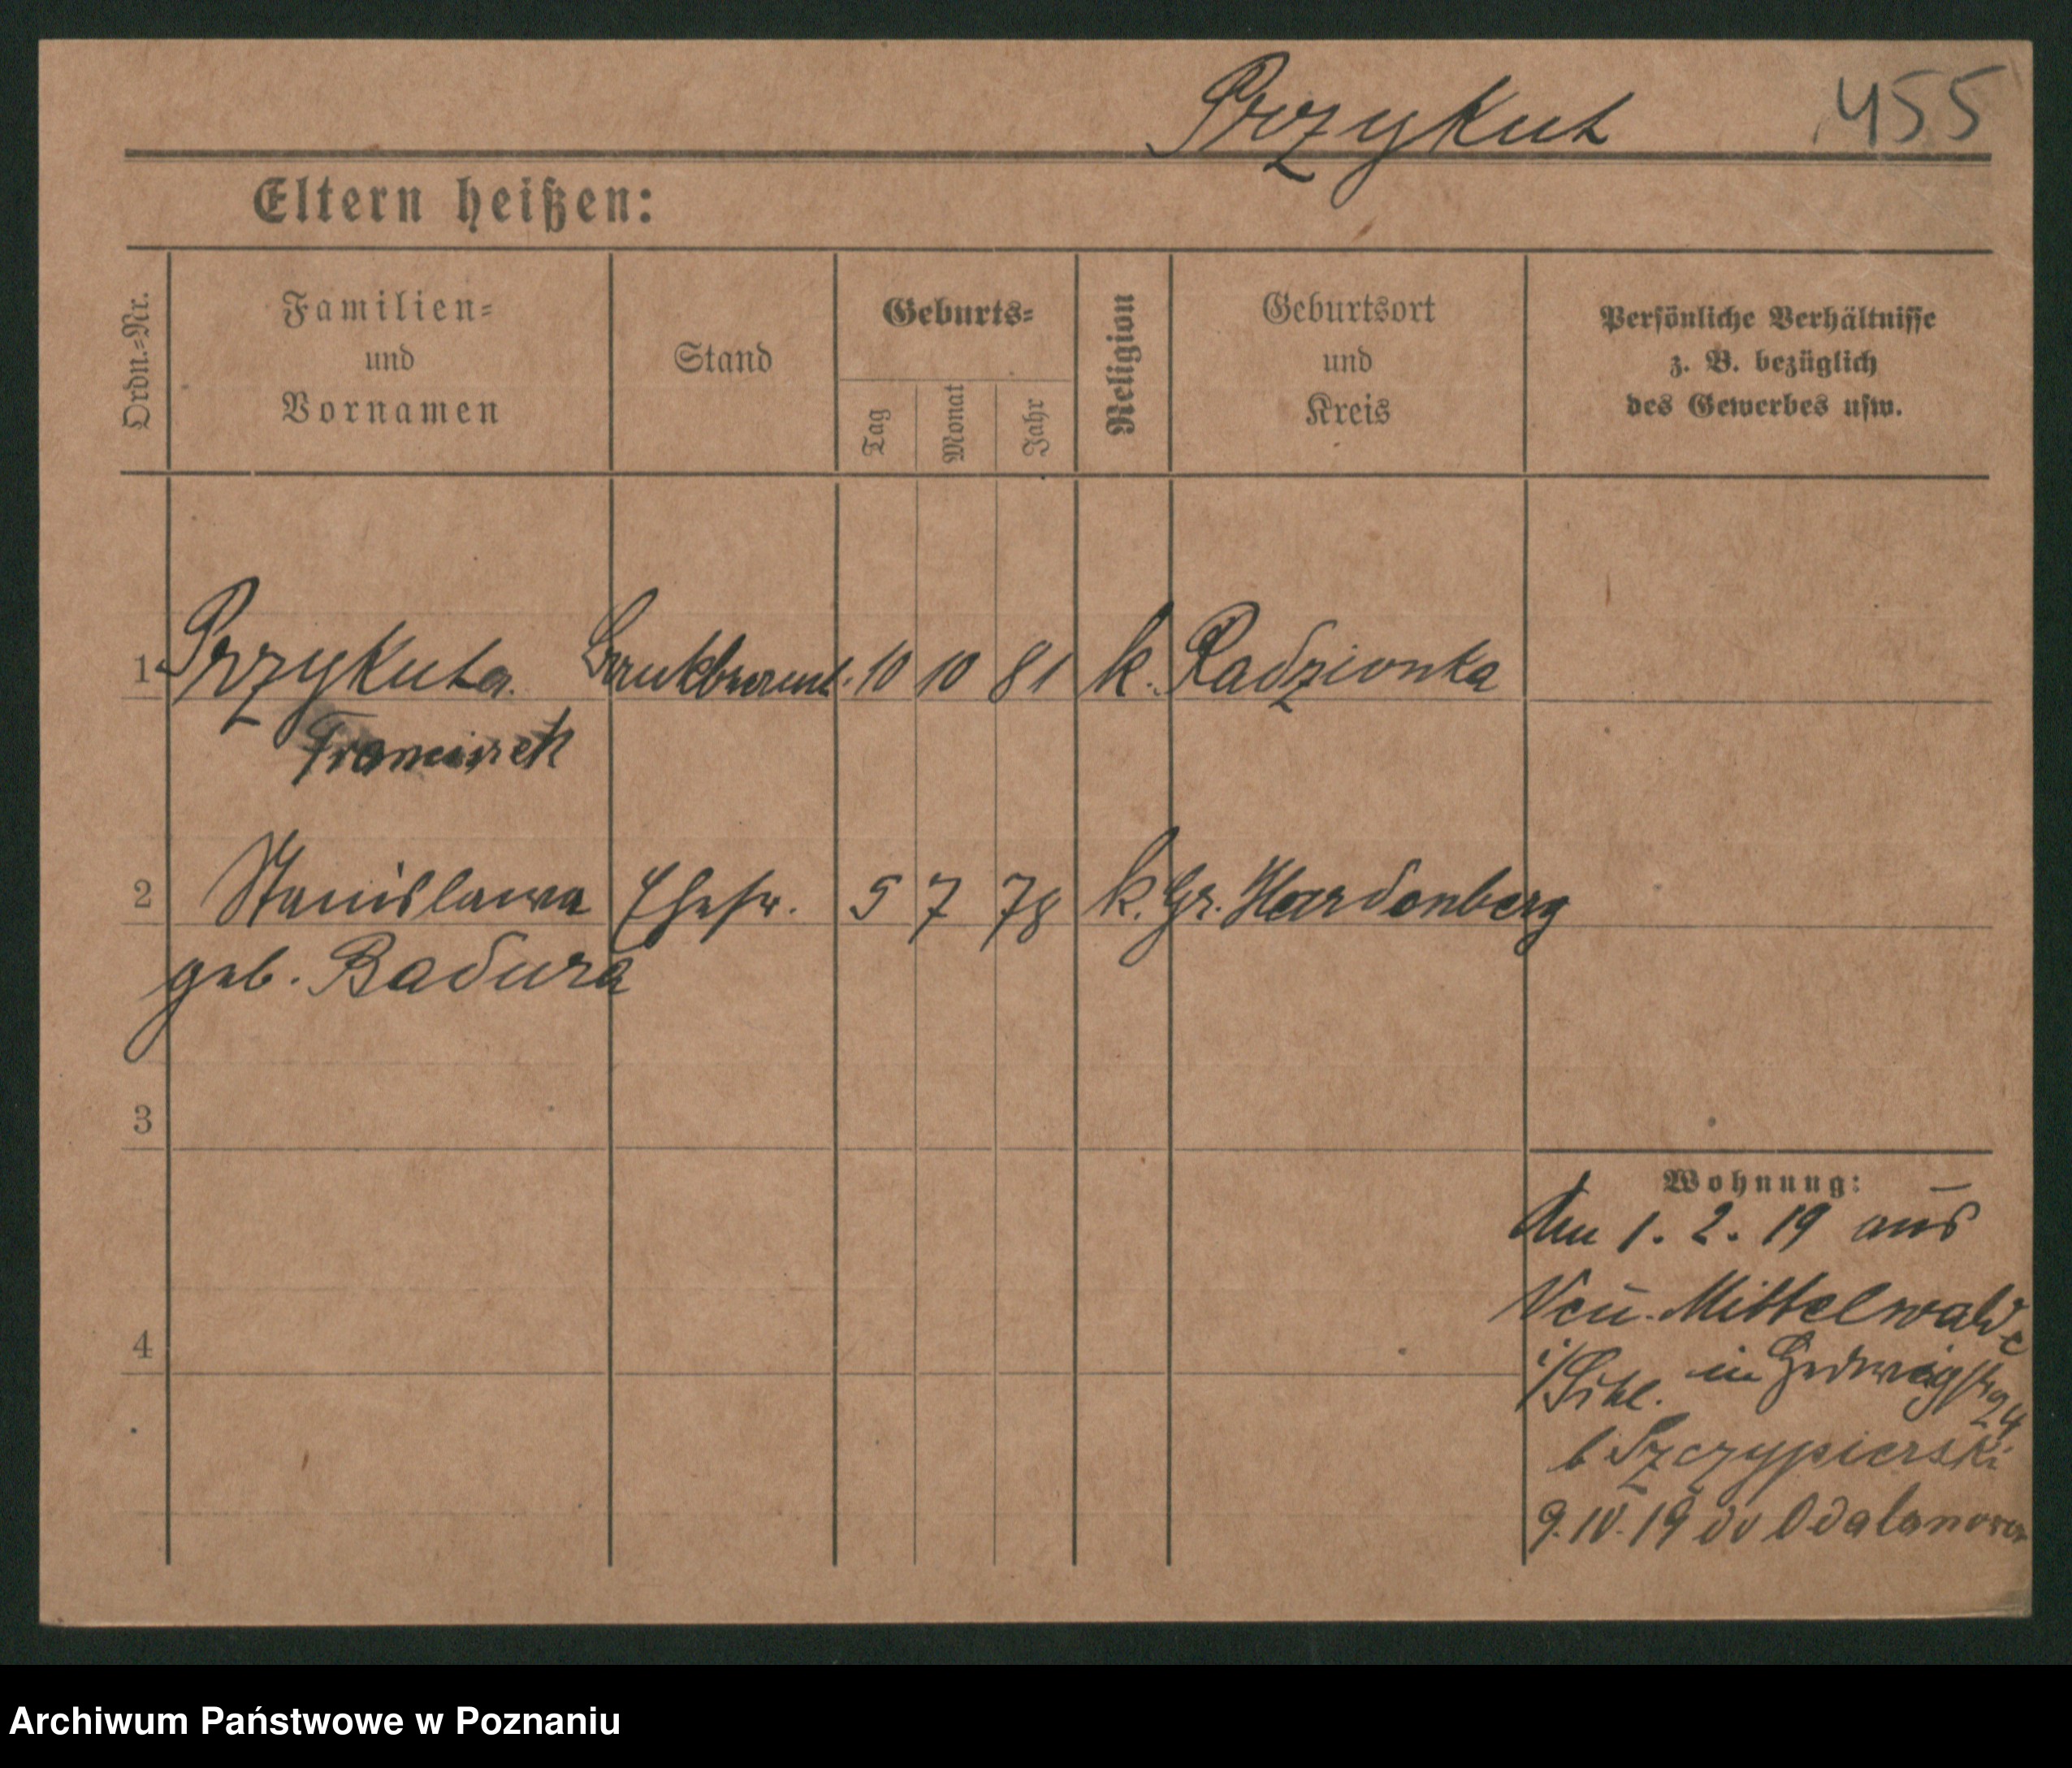 Przykut 455
Eltern heißen:
Ordn.=Nr.
Familien=
und
Vornamen
Stand
Geburts=
Tag
Monat
Jahr
Religion
Geburtsort
und
Kreis
Persönliche Verhältnisse
z. B. bezüglich
des Gewerbes usw.
1 Przykuta 10 10 81 k. Radzionka
Franciszek
2 Stanislawa Ehefr. 5 7 78 k. Gr. Hardenberg
geb. Badura
3
4
Wohnung:
den 1. 2. 19 aus
Neu-Mittelwalde
i/Schl. in Hedwigstr 24
b Szczypierski
9. IV. 19 do Odalanowa
Archiwum Państwowe w Poznaniu